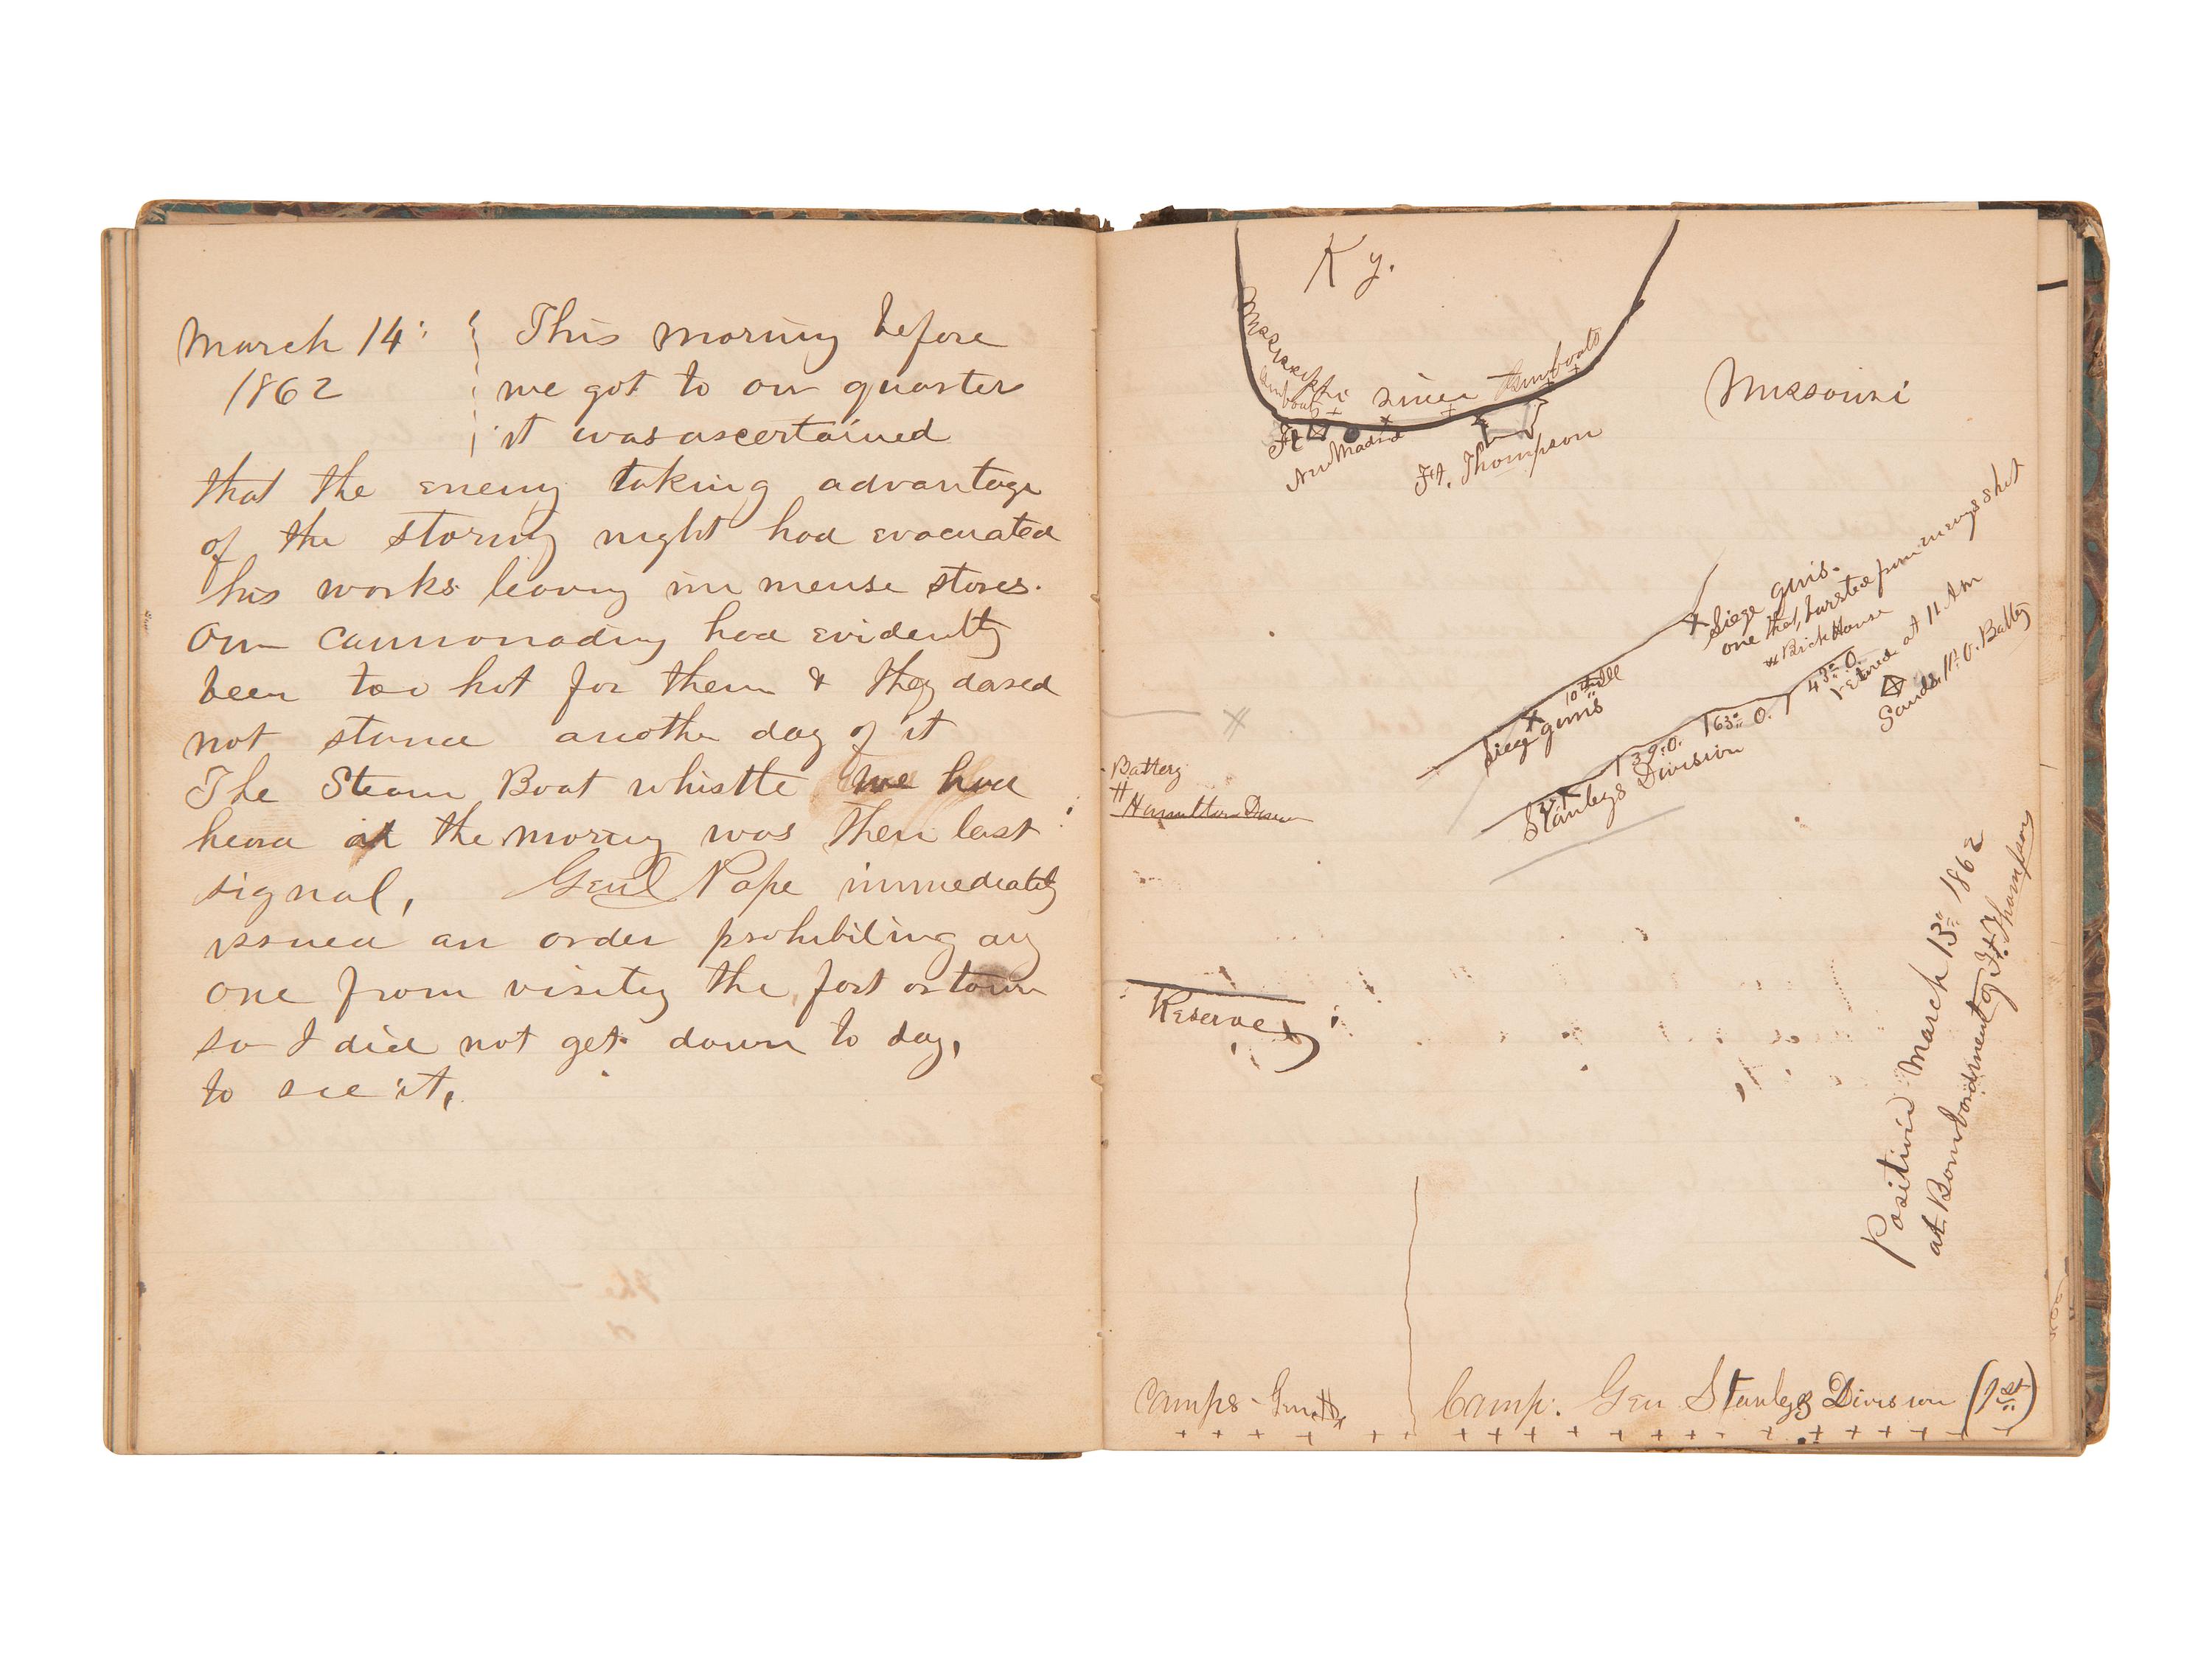 March 14: This morning before
1862 we got to our quarter
it was ascertained
that the enemy taking advantage
of the stormy night had evacuated
his works leaving im mense stores.
Our cannonading had evidently
been too hot for them & they dared
not stand another day of it
The Steam Boat whistle we had
heard in the morning was their last
signal, Genl Pope immediately
issued an order prohibiting any
one from visiting the fort or town
so I did not get down to day,
to see it,
Ky.
Mississippi River Gunboats
Gunboats
Missouri
Ft
New Madrid
Ft. Thompson
Siege guns.
one that bursted from enemys shot
Brick House
10th Ill
Siege guns
43d O.
retired at 11 A m
Sands 11th O. Battery
63d O.
39th O.
27
Stanleys Division
Battery
Hamiltons Division
Reserve
Position March 13th 1862
at Bombardment of Ft. Thompson
Camps
Camp. Gen Stanleys Division (1st)